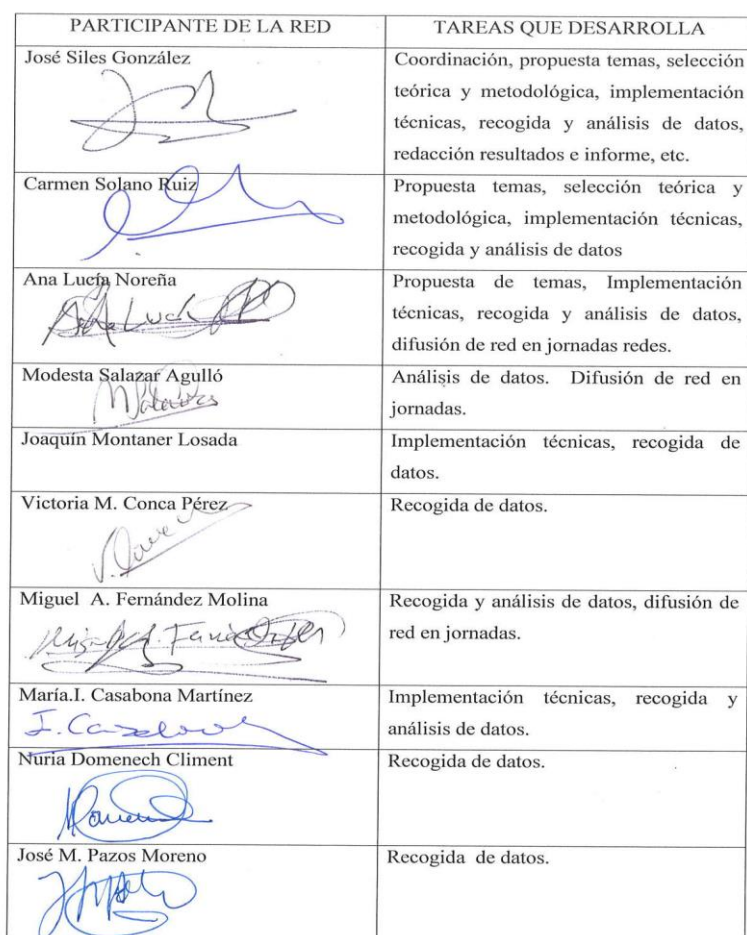 PARTICIPANTE DE LA RED
TAREAS QUE DESARROLLA
José Siles González
Coordinación, propuesta temas, selección
teórica y metodológica, implementación
técnicas, recogida y análisis de datos,
redacción resultados e informe, etc.
Carmen Solano Ruiz
Propuesta temas, selección teórica y
metodológica, implementación técnicas,
recogida y análisis de datos
Ana Lucía Noreña
Ana Lucía
Propuesta de temas, Implementación
técnicas, recogida y análisis de datos,
difusión de red en jornadas redes.
Modesta Salazar Agulló
Análisis de datos. Difusión de red en
jornadas.
Joaquín Montaner Losada
Implementación técnicas, recogida de
datos.
Victoria M. Conca Pérez
Recogida de datos.
Miguel A. Fernández Molina
Recogida y análisis de datos, difusión de
red en jornadas.
María.I. Casabona Martínez
I. Casabona
Implementación técnicas, recogida y
análisis de datos.
Nuria Domenech Climent
Recogida de datos.
José M. Pazos Moreno
Recogida de datos.